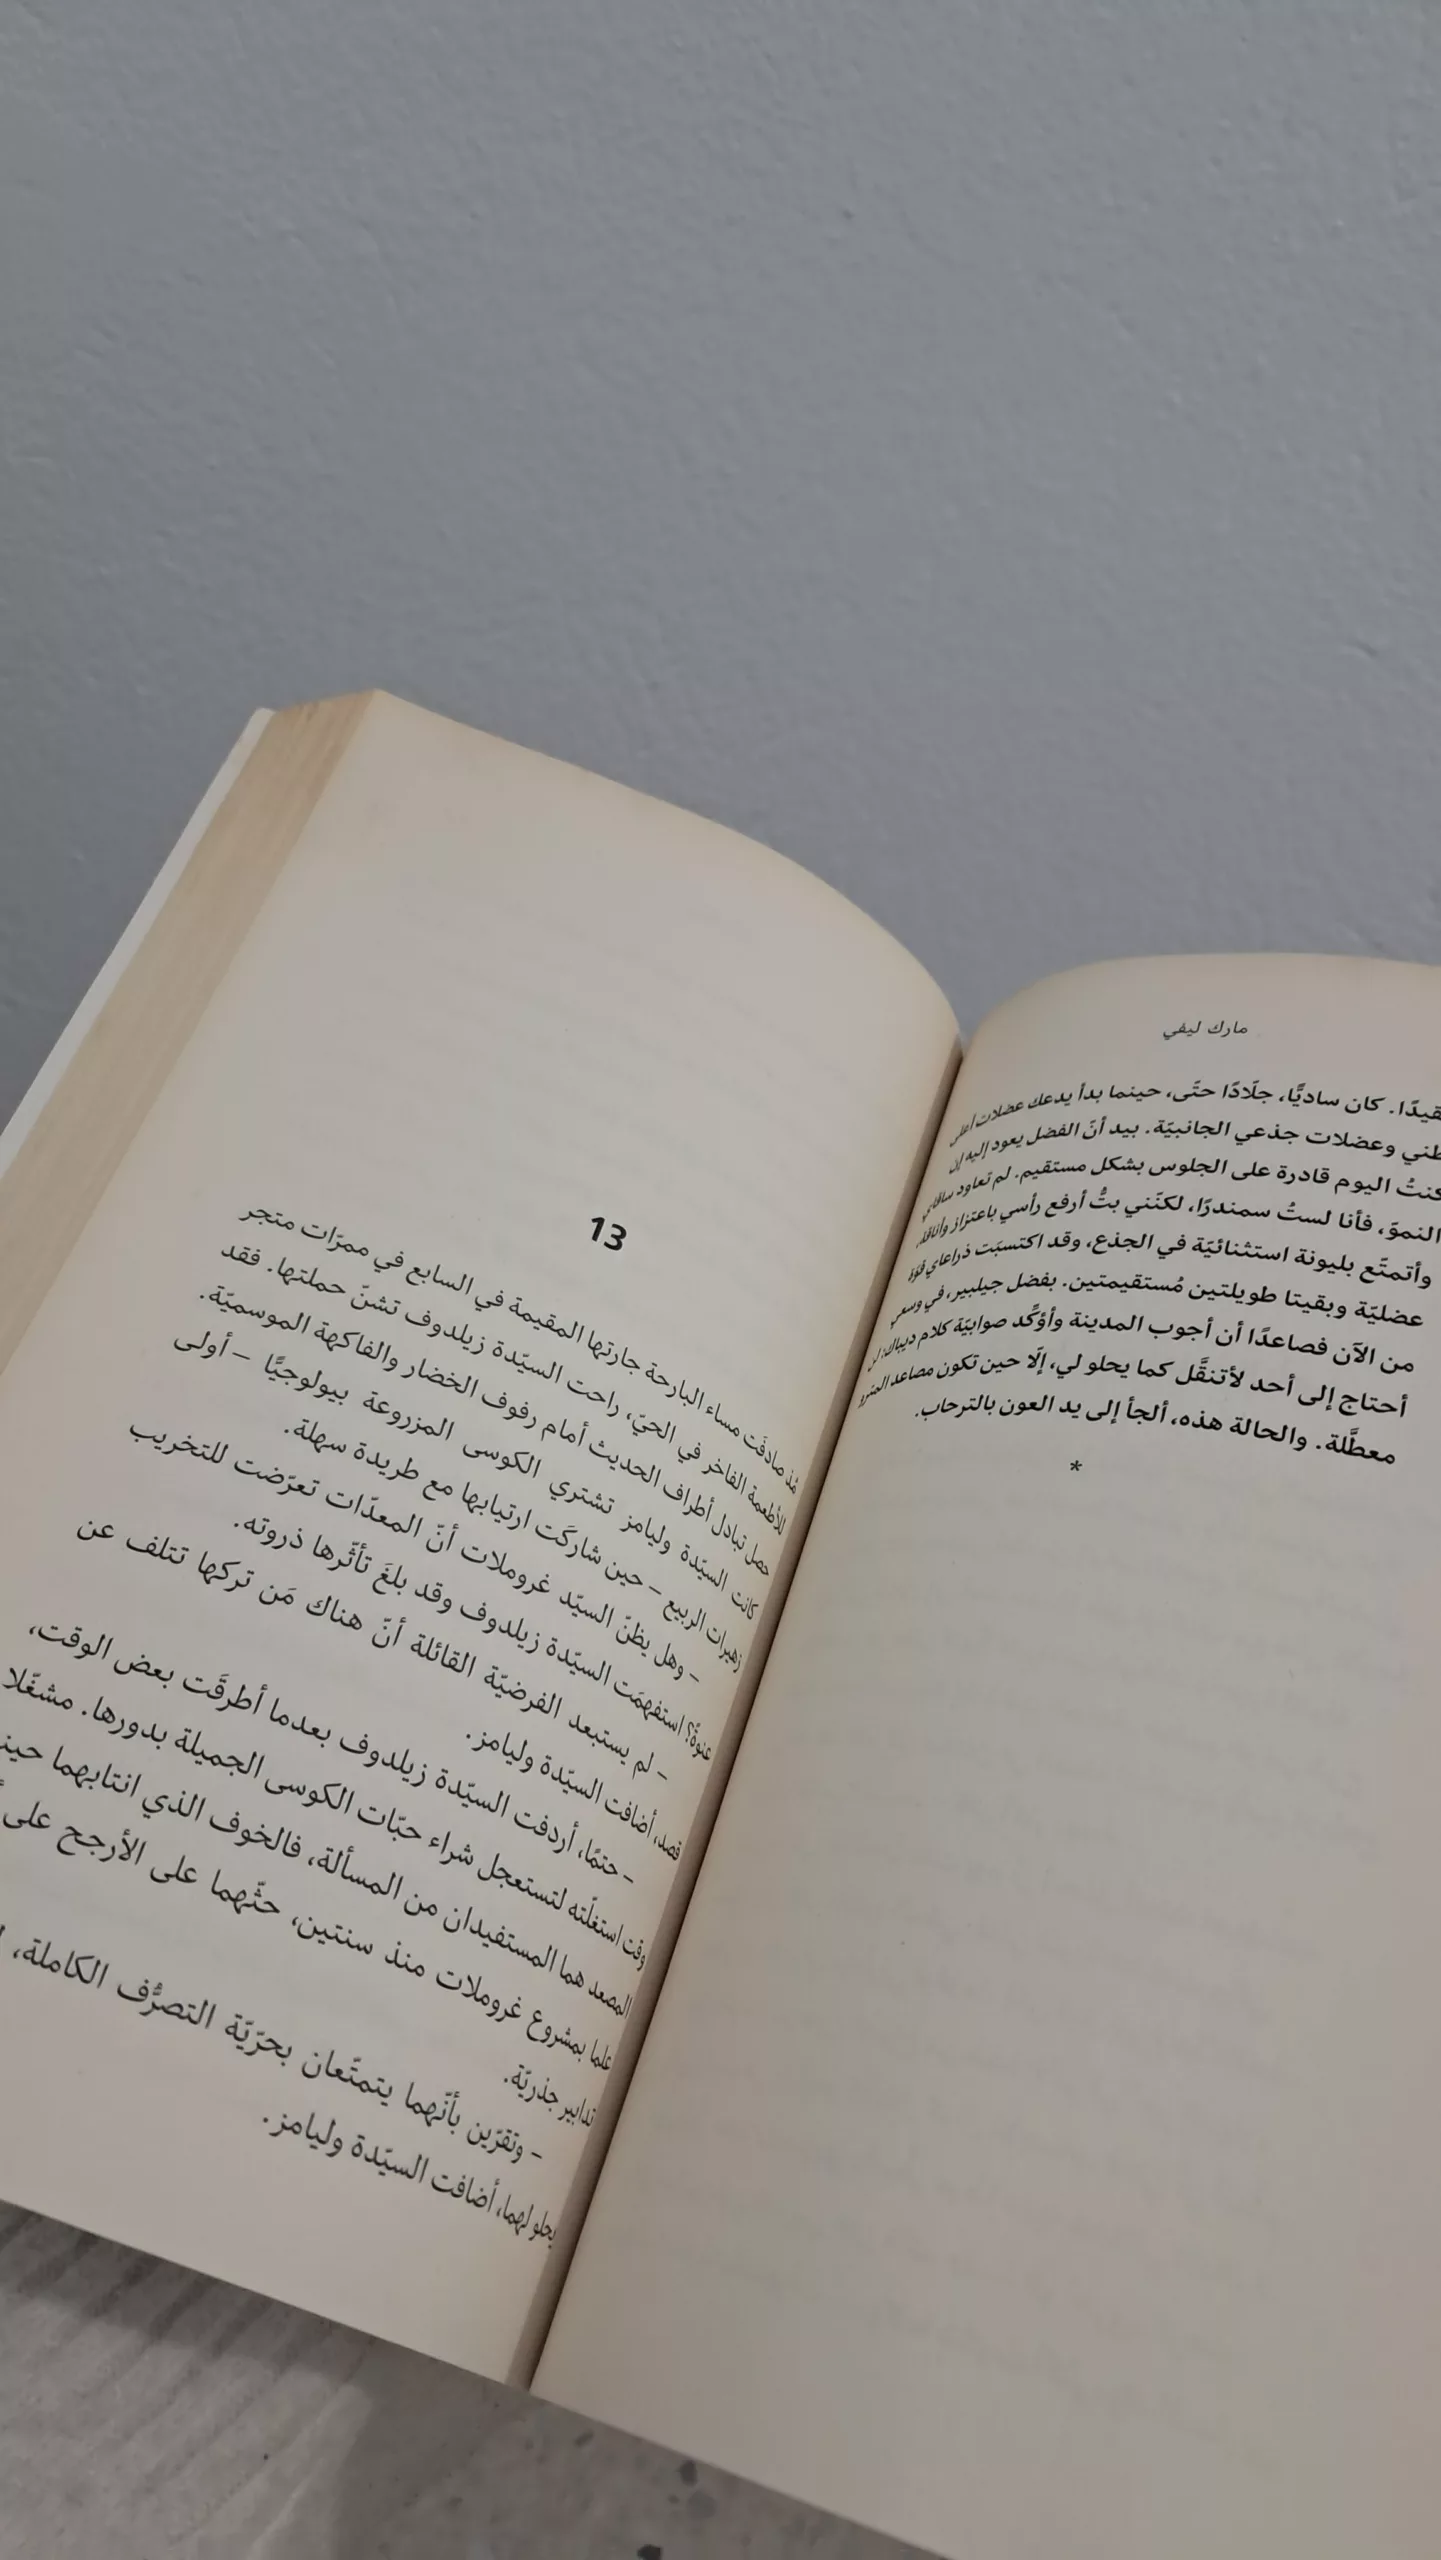 مارك ليفي
كان ساديًّا، جلّادًا حتّى، حينما بدأ يدعك عضلات أعلى
وعضلات جذعي الجانبيّة. بيد أنّ الفضل يعود إليه إن
كنتُ اليوم قادرة على الجلوس بشكل مستقيم. لم تعاود ساقاي
النموّ، فأنا لستُ سمندرًا، لكنّني بتُّ أرفع رأسي باعتزاز وأناقة،
وأتمتّع بليونة استثنائيّة في الجذع، وقد اكتسبَت ذراعاي قوّة
عضليّة وبقيتا طويلتين مُستقيمتين. بفضل جيلبير، في وسعي
من الآن فصاعدًا أن أجوب المدينة وأؤكِّد صوابيّة كلام ديباك: لن
أحتاج إلى أحد لأتنقَّل كما يحلو لي، إلّا حين تكون مصاعد المترو
معطَّلة. والحالة هذه، ألجأ إلى يد العون بالترحاب.
*
13
مُذ صادفَت مساء البارحة جارتها المقيمة في السابع في ممرّات متجر
للأطعمة الفاخر في الحيّ، راحت السيّدة زيلدوف تشنّ حملتها. فقد
حصل تبادل أطراف الحديث أمام رفوف الخضار والفاكهة الموسميّة.
كانت السيّدة وليامز تشتري الكوسى المزروعة بيولوجيًّا – أولى
زهيرات الربيع – حين شاركَت ارتيابها مع طريدة سهلة.
– وهل يظنّ السيّد غروملات أنّ المعدّات تعرّضت للتخريب
عنوةً؟ استفهمَت السيّدة زيلدوف وقد بلغَ تأثّرها ذروته.
– لم يستبعد الفرضيّة القائلة أنّ هناك مَن تركها تتلف عن
قصد، أضافت السيّدة وليامز.
– حتمًا، أردفت السيّدة زيلدوف بعدما أطرقَت بعض الوقت،
وقت استغلّته لتستعجل شراء حبّات الكوسى الجميلة بدورها. مشغّلا
المصعد هما المستفيدان من المسألة، فالخوف الذي انتابهما
علما بمشروع غروملات منذ سنتين، حثّهما على الأرجح على
تدابير جذريّة.
– وتقرّين بأنّهما يتمتّعان بحرّيّة التصرُّف الكاملة،
يحلو لهما، أضافت السيّدة وليامز.